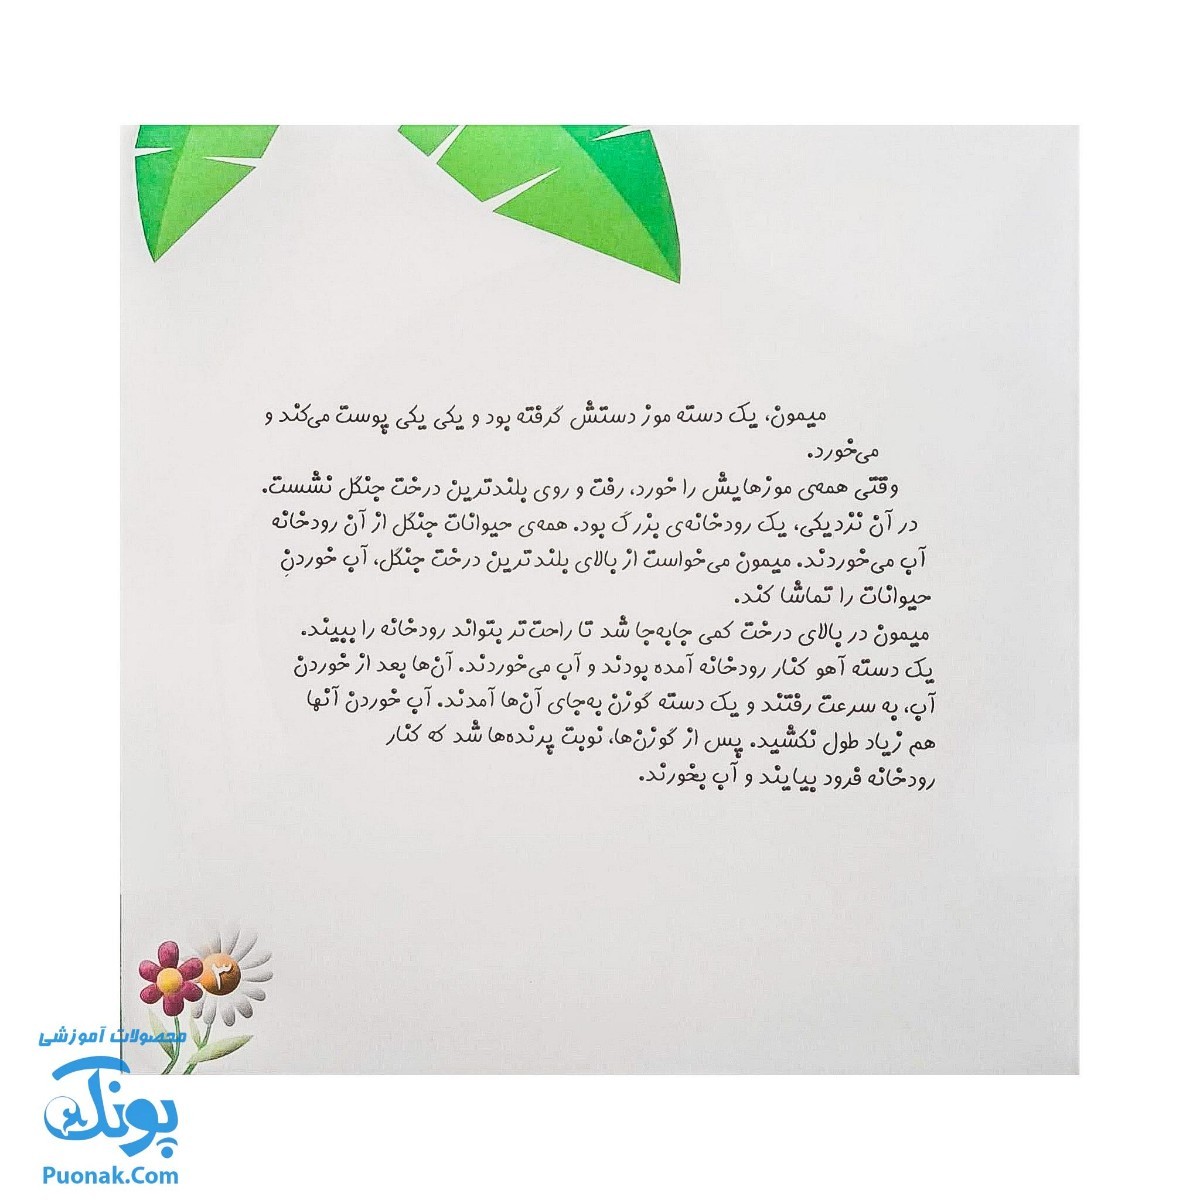 میمون، یک دسته موز دستش گرفته بود و یکی یکی پوست می‌کند و
می‌خورد.
وقتی همه‌ی موزهایش را خورد، رفت و روی بلندترین درخت جنگل نشست.
در آن نزدیکی، یک رودخانه‌ی بزرگ بود. همه‌ی حیوانات جنگل از آن رودخانه
آب می‌خوردند. میمون می‌خواست از بالای بلندترین درخت جنگل، آب خوردنِ
حیوانات را تماشا کند.
میمون در بالای درخت کمی جابه‌جا شد تا راحت‌تر بتواند رودخانه را ببیند.
یک دسته آهو کنار رودخانه آمده بودند و آب می‌خوردند. آن‌ها بعد از خوردن
آب، به سرعت رفتند و یک دسته گوزن به‌جای آن‌ها آمدند. آب خوردن آنها
هم زیاد طول نکشید. پس از گوزن‌ها، نوبت پرنده‌ها شد که کنار
رودخانه فرود بیایند و آب بخورند.
۳
محصولات آموزشی
پونک
Puonak.Com